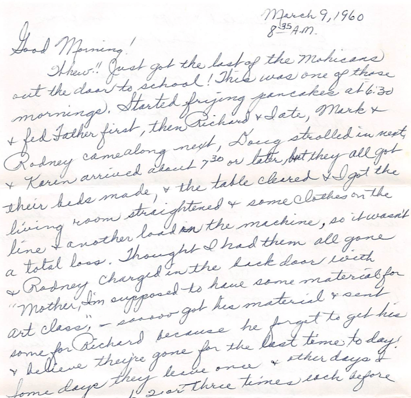 March 9, 1960
8 35 A.M.
Good Morning!
Whew!! Just got the last of the Mohicans
out the door to school! This was one of those
mornings. Started frying pancakes at 6:30
& fed Father first, then Richard & Tate, Mark &
Rodney came along next, Doug strolled in next,
& Karin arrived about 7 30 or later but they all got
their beds made, & the table cleared & I got the
living room straightened & some clothes on the
line & another load in the machine, so it wasn't
a total loss. Thought I had them all gone
& Rodney charged in the back door with
"Mother, I'm supposed to have some material for
art class", - sooooo got his material & sent
some for Richard because he forgot to get his
& believe they're gone for the last time to-day!
Some days they leave once & other days
2 or three times each before